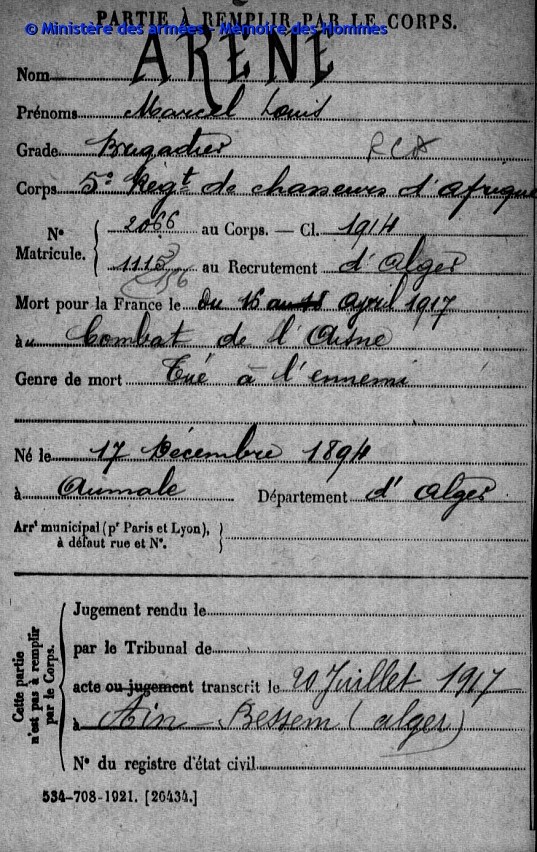 PARTIE À REMPLIR PAR LE CORPS.
© Ministère des armées - Mémoire des Hommes
Nom ARÈNE
Prénoms Marcel Louis
Grade Brigadier RCA
Corps 5e Regt de chasseurs d'Afrique
No Matricule. { 2066 au Corps. — Cl. 1914
1115 au Recrutement d'Alger
Mort pour la France le du 16 au 18 april 1917
à au Combat de l'Aisne
Genre de mort Tué à l'ennemi
Né le 17 Décembre 1894
à Aumale Département d'Alger
Arrt municipal (pr Paris et Lyon), à défaut rue et No. }
Cette partie n'est pas à remplir par le Corps.
Jugement rendu le
par le Tribunal de
acte ou jugement transcrit le 20 Juillet 1917
à Aïn-Bessem (alger)
No du registre d'état civil
534-708-1921. [26434.]